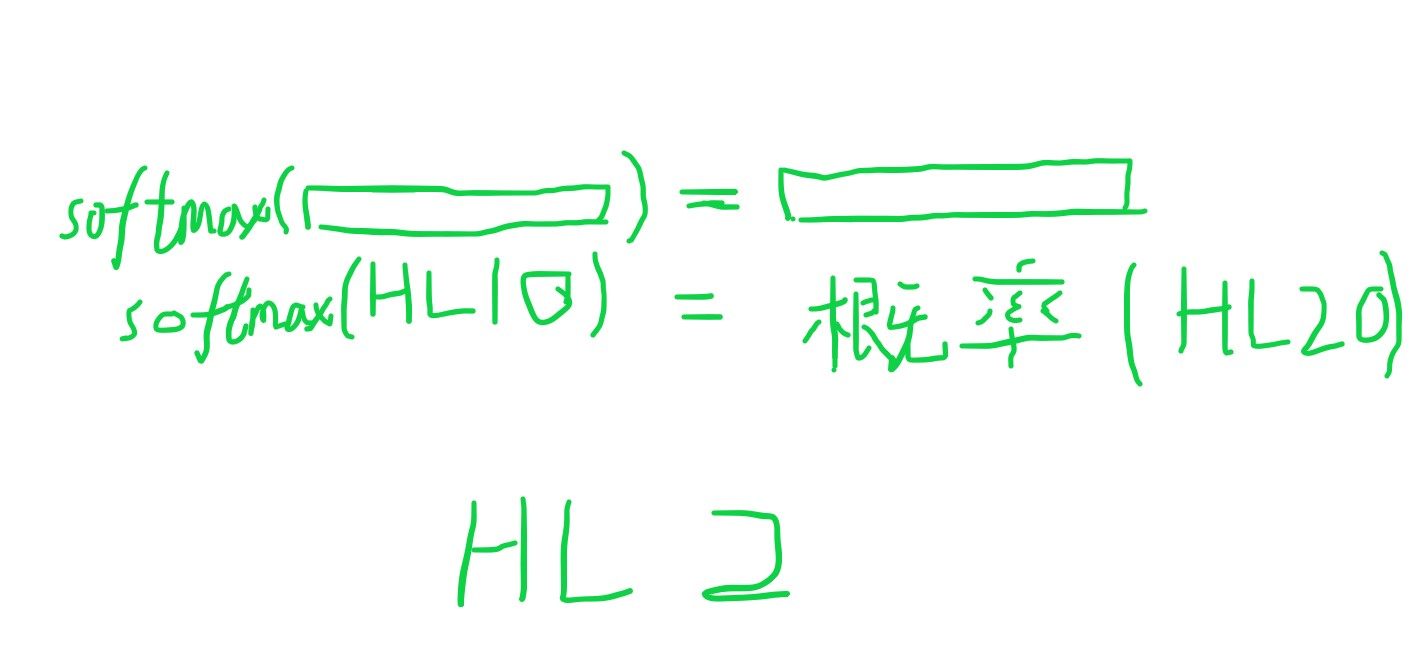 softmax( ) =
softmax(HL10) = 概率(HL20)
HL 2